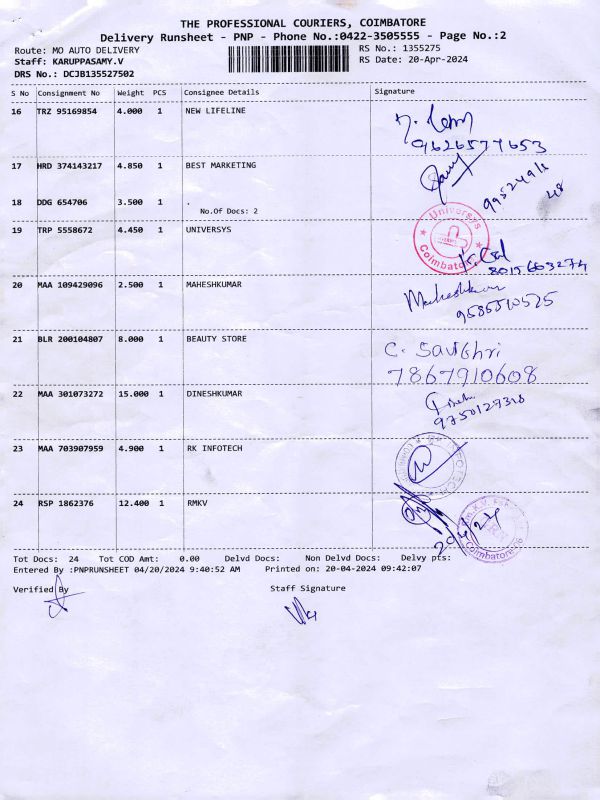 THE PROFESSIONAL COURIERS, COIMBATORE
Delivery Runsheet - PNP - Phone No.:0422-3505555 - Page No.:2
Route: MO AUTO DELIVERY RS No.: 1355275
Staff: KARUPPASAMY.V RS Date: 20-Apr-2024
DRS No.: DCJB135527502
S No Consignment No Weight PCS Consignee Details Signature
16 TRZ 95169854 4.000 1 NEW LIFELINE
9626577653
17 HRD 374143217 4.850 1 BEST MARKETING
18 DDG 654706 3.500 1 .
No.Of Docs: 2
19 TRP 5558672 4.450 1 UNIVERSYS
Universys
Coimbatore
8015663274
20 MAA 109429096 2.500 1 MAHESHKUMAR
Maheshkumar
9585510525
21 BLR 200104807 8.000 1 BEAUTY STORE
C. Savithri
7867910608
22 MAA 301073272 15.000 1 DINESHKUMAR
9750127318
23 MAA 703907959 4.900 1 RK INFOTECH
24 RSP 1862376 12.400 1 RMKV
20/4/24
Coimbatore
Tot Docs: 24 Tot COD Amt: 0.00 Delvd Docs: Non Delvd Docs: Delvy pts:
Entered By :PNPRUNSHEET 04/20/2024 9:40:52 AM Printed on: 20-04-2024 09:42:07
Verified By Staff Signature